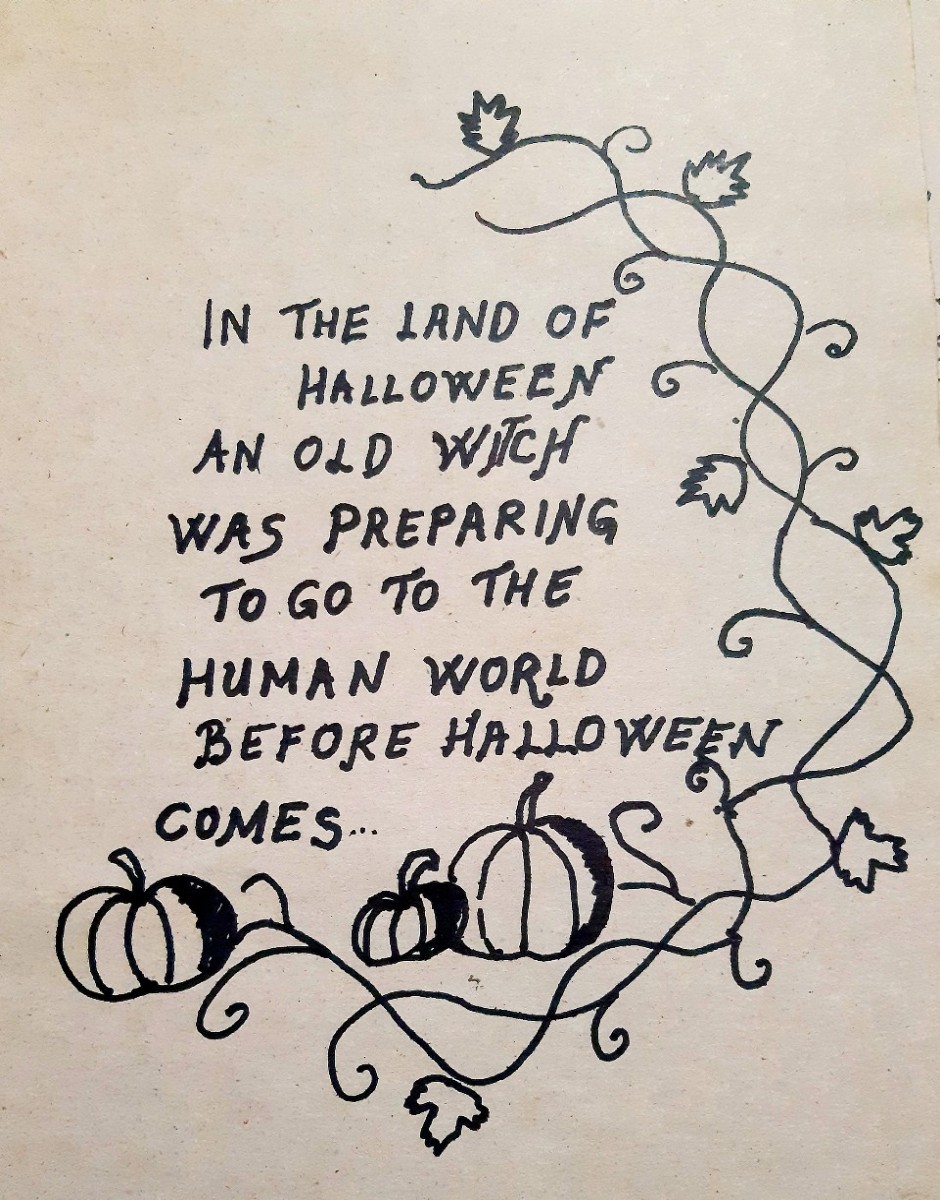 IN THE LAND OF
HALLOWEEN
AN OLD WITCH
WAS PREPARING
TO GO TO THE
HUMAN WORLD
BEFORE HALLOWEEN
COMES...